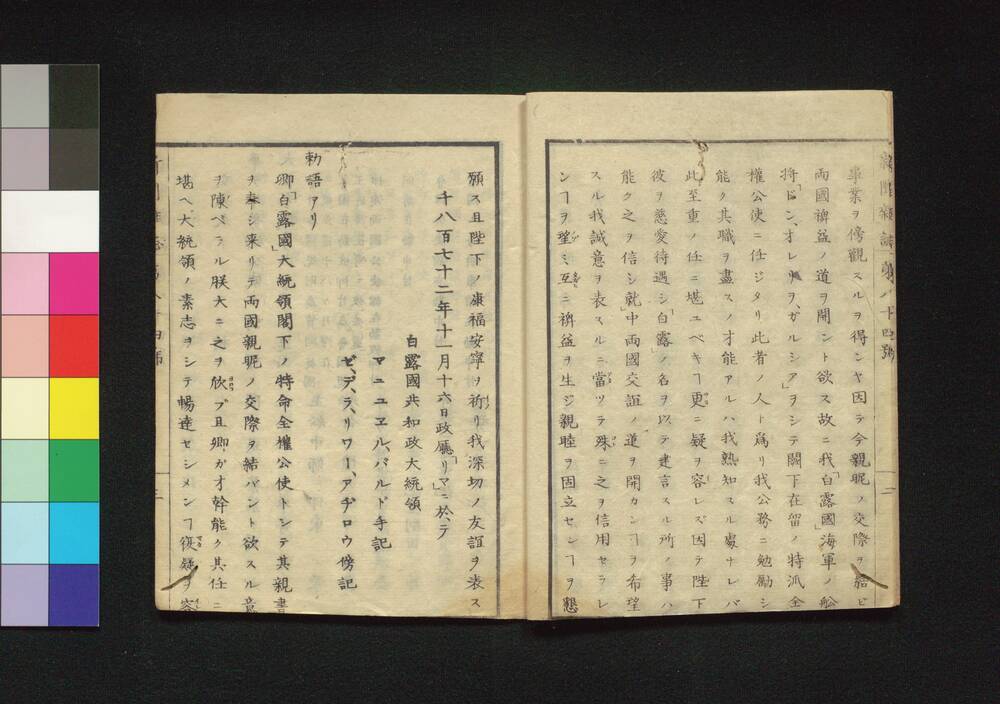 事業ヲ傍觀スルヲ得ンヤ因テ今親昵ノ交際ヲ結ビ
両國裨益ノ道ヲ開ント欲ス故ニ我「白露國」海軍ノ船
將「ドン、オレリヲ、ガルシア」ヲシテ閣下在留ノ特派全
權公使ニ任ジタリ此者ノ人ト爲リ我公務ニ勉勵シ
能ク其職ヲ盡スノ才能アルハ我熟知スル處ナレバ
此至重ノ任ニ堪ユベキヿ更ニ疑ヲ容レズ因テ陛下
彼ヲ慈愛待遇シ「白露」ノ名ヲ以テ建言スル所ノ事ハ
能ク之ヲ信シ就中両國交誼ノ道ヲ開カンヿヲ希望
スル我誠意ヲ表スルニ當ツテ殊ニ之ヲ信用セラレ
ンヿヲ望ミ互ニ裨益ヲ生ジ親睦ヲ固立センヿヲ懇
新聞雜誌 第八十四號
三
願ス且陛下ノ康福安寧ヲ祈リ我深切ノ友誼ヲ表ス
千八百七十二年十一月十六日政廳「リマ」ニ於テ
白露國共和政大統領
マニユヱル、パルド手記
ゼ、デ、ラ、リワー、アヂロウ傍記
勅語アリ
卿「白露國」大統領閣下ノ特命全權公使トシテ其親書
ヲ奉シ来リテ両國親昵ノ交際ヲ結バント欲スル意
ヲ陳ベラル朕大ニ之ヲ欣ブ且卿ガ才幹能ク其任ニ
堪ヘ大統領ノ素志ヲシテ暢達セシメンヿ復疑ヲ容